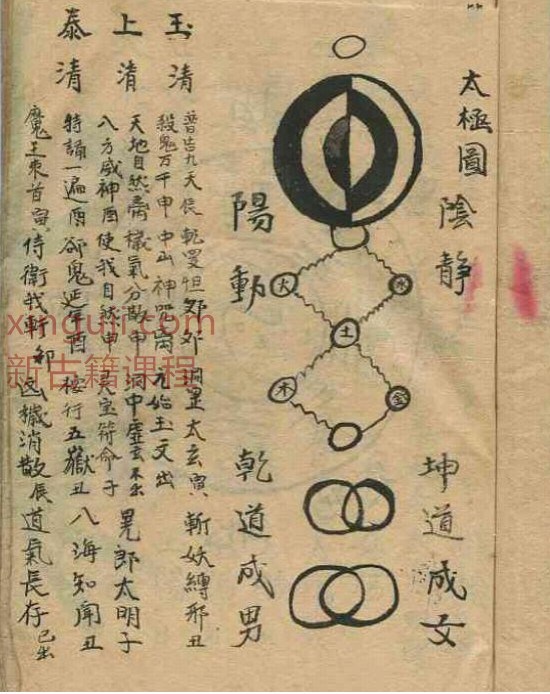 太極圖
陰靜
坤道成女
火 水
土
木 金
陽動
乾道成男
玉清
上清
泰清
普告九天辰 乾羅怛那卯 洞罡太玄寅 斬妖縛邪丑
殺鬼万千申 中山神咒酉 元始玉文出
天地自然 穢氣分散申 洞中虛玄 出 晃郎太明子
八方威神酉 使我自然申 灵宝符命子
特誦一遍酉 卻鬼延年酉 按行五嶽丑 八海知聞丑
魔王束首寅 侍衛我軒卯 凶穢消散辰 道氣長存已出
xinguji.com
新古籍课程